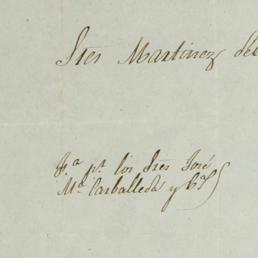 Sres Martinez del
F.ª p.r los Sres José
M.ª Carballeda y C.ª